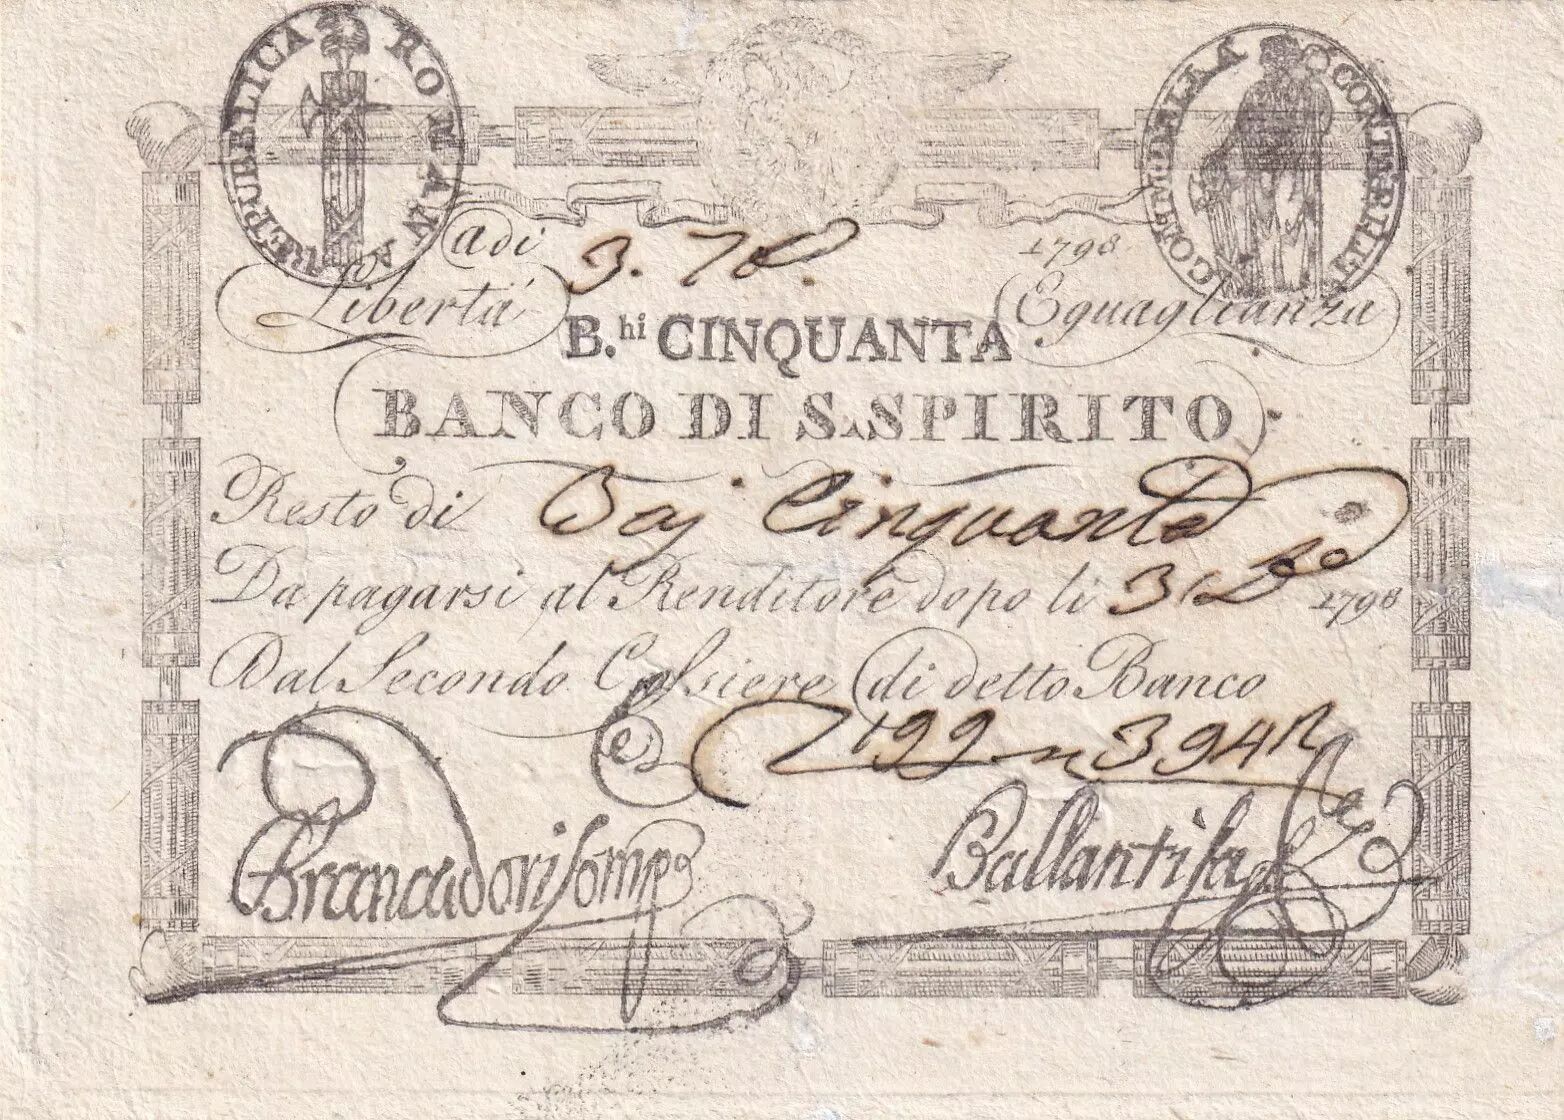 REPUBBLICA ROMANA
Adi 3. 1798
Libertà Eguaglianza
B.hi CINQUANTA
BANCO DI S. SPIRITO
Resto di Baj Cinquanta
Da pagarsi al Renditore dopo li 31 1798
Dal Secondo Cassiere di detto Banco
199 n 394
Brancadori Comp
Ballanti